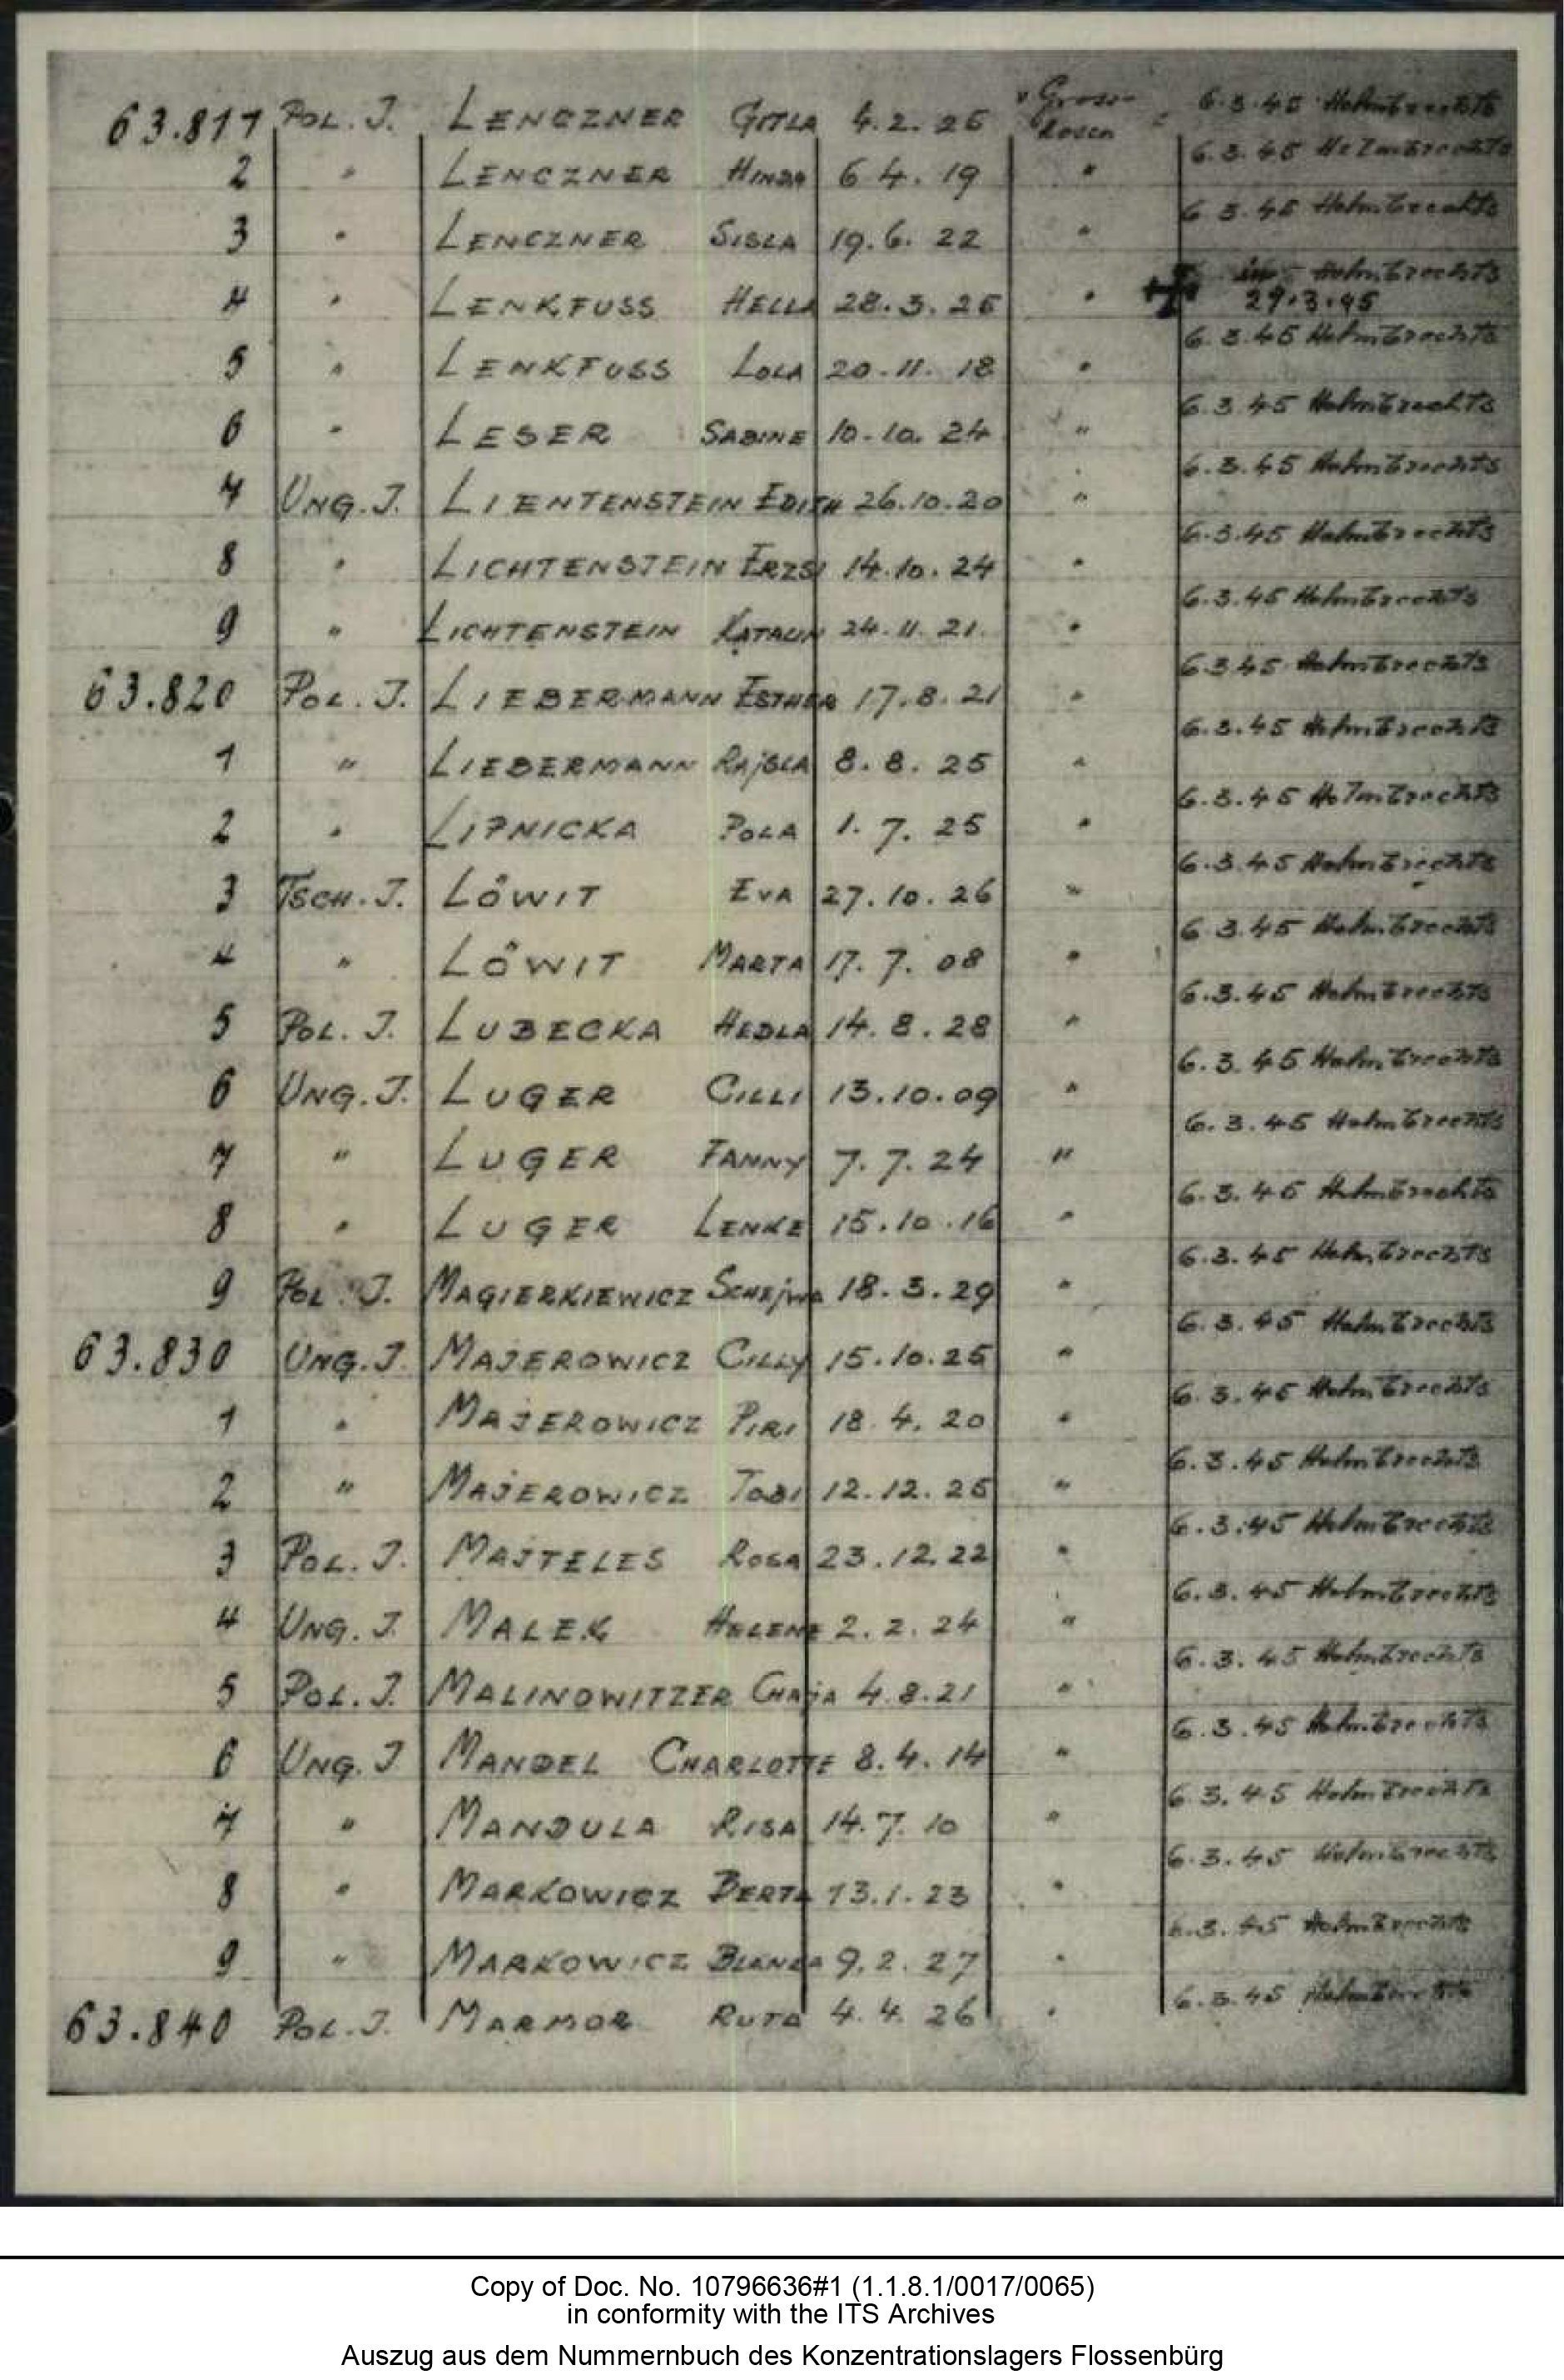 63.811 Pol. J. LENCZNER GITLA 4.2.25 v Gross-Rosen 6.3.45 Helmbrechts
2 " LENCZNER HINDA 6 4. 19 " 6.3.45 Helmbrechts
3 " LENCZNER SISLA 19.6. 22 " 6 3.45 Helmbrechts
4 " LENKFUSS HELLA 28.3.25 " in Helmbrechts
29.3.45
5 " LENKFUSS LOLA 20.11. 18 " 6.3.45 Helmbrechts
6 " LESER SABINE 10.10. 24 " 6.3.45 Helmbrechts
7 UNG. J. LIENTENSTEIN EDITH 26.10.20 " 6.3.45 Helmbrechts
8 " LICHTENSTEIN ERZSI 14.10.24 " 6.3.45 Helmbrechts
9 " LICHTENSTEIN KATALIN 24.11.21. " 6.3.45 Helmbrechts
63.820 Pol. J. LIEBERMANN ESTHER 17.8.21 " 6.3.45 Helmbrechts
1 " LIEBERMANN RAJSLA 8.8.25 " 6.3.45 Helmbrechts
2 " LIPNICKA POLA 1.7.25 " 6.3.45 Helmbrechts
3 TSCH. J. LÖWIT EVA 27.10.26 " 6.3.45 Helmbrechts
4 " LÖWIT MARTA 17.7.08 " 6 3.45 Helmbrechts
5 Pol. J. LUBECKA HEDLA 14.8.28 " 6.3.45 Helmbrechts
6 UNG. J. LUGER CILLI 13.10.09 " 6.3.45 Helmbrechts
7 " LUGER FANNY 7.7.24 " 6.3.45 Helmbrechts
8 " LUGER LENKE 15.10.16 " 6.3.45 Helmbrechts
9 Pol. J. MAGIERKIEWICZ SCHEJWA 18.3.29 " 6.3.45 Helmbrechts
63.830 UNG. J. MAJEROWICZ CILLY 15.10.25 " 6.3.45 Helmbrechts
1 " MAJEROWICZ PIRI 18 4.20 " 6.3.45 Helmbrechts
2 " MAJEROWICZ TOBI 12.12.25 " 6.3.45 Helmbrechts
3 Pol. J. MAJTELES ROSA 23.12.22 " 6.3.45 Helmbrechts
4 UNG. J. MALEK HELENE 2.2.24 " 6.3.45 Helmbrechts
5 Pol. J. MALINOWITZER CHAJA 4.8.21 " 6.3.45 Helmbrechts
6 UNG. J MANDEL CHARLOTTE 8.4.14 " 6.3.45 Helmbrechts
7 " MANDULA RISA 14.7.10 " 6.3.45 Helmbrechts
8 " MARKOWICZ BERTA 13.1.23 " 6.3.45 Helmbrechts
9 " MARKOWICZ BLANKA 9.2.27 " 6.3.45 Helmbrechts
63.840 Pol. J. MARMOR RUTA 4.4.26 " 6.3.45 Helmbrechts
Copy of Doc. No. 10796636#1 (1.1.8.1/0017/0065)
in conformity with the ITS Archives
Auszug aus dem Nummernbuch des Konzentrationslagers Flossenbürg